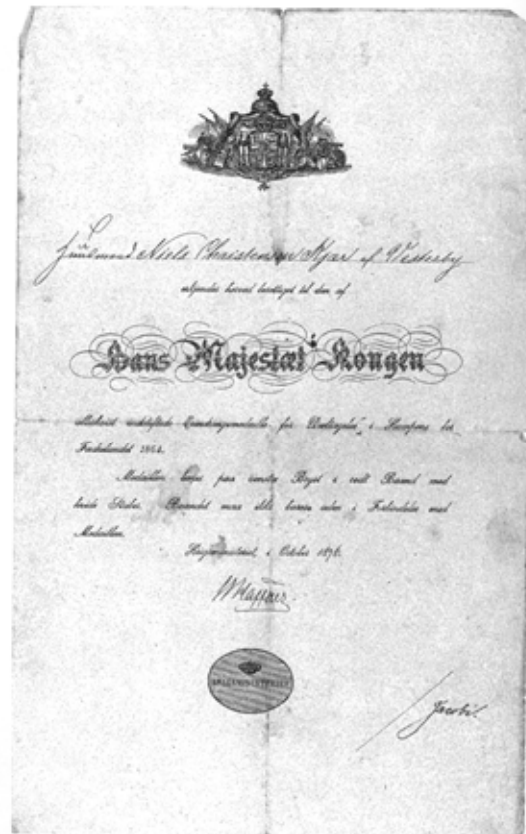 Huusmand Niels Christensen Kjær af Vesterby
udgaar herved bevidnet til den af
Hans Majestæt Kongen
Allerhøist indstiftede Erindringsmedaille for Deeltagelse i Kampen for
Fædrelandet 1864.
Medaillen bæres paa venstre Bryst i rødt Baand med
hvide Striber. Baandet maa ikke bæres uden i Forbindelse med
Medaillen.
Krigsministeriet, i October 1876.
W Haffner
KRIGSMINISTERIET
Jacobi.